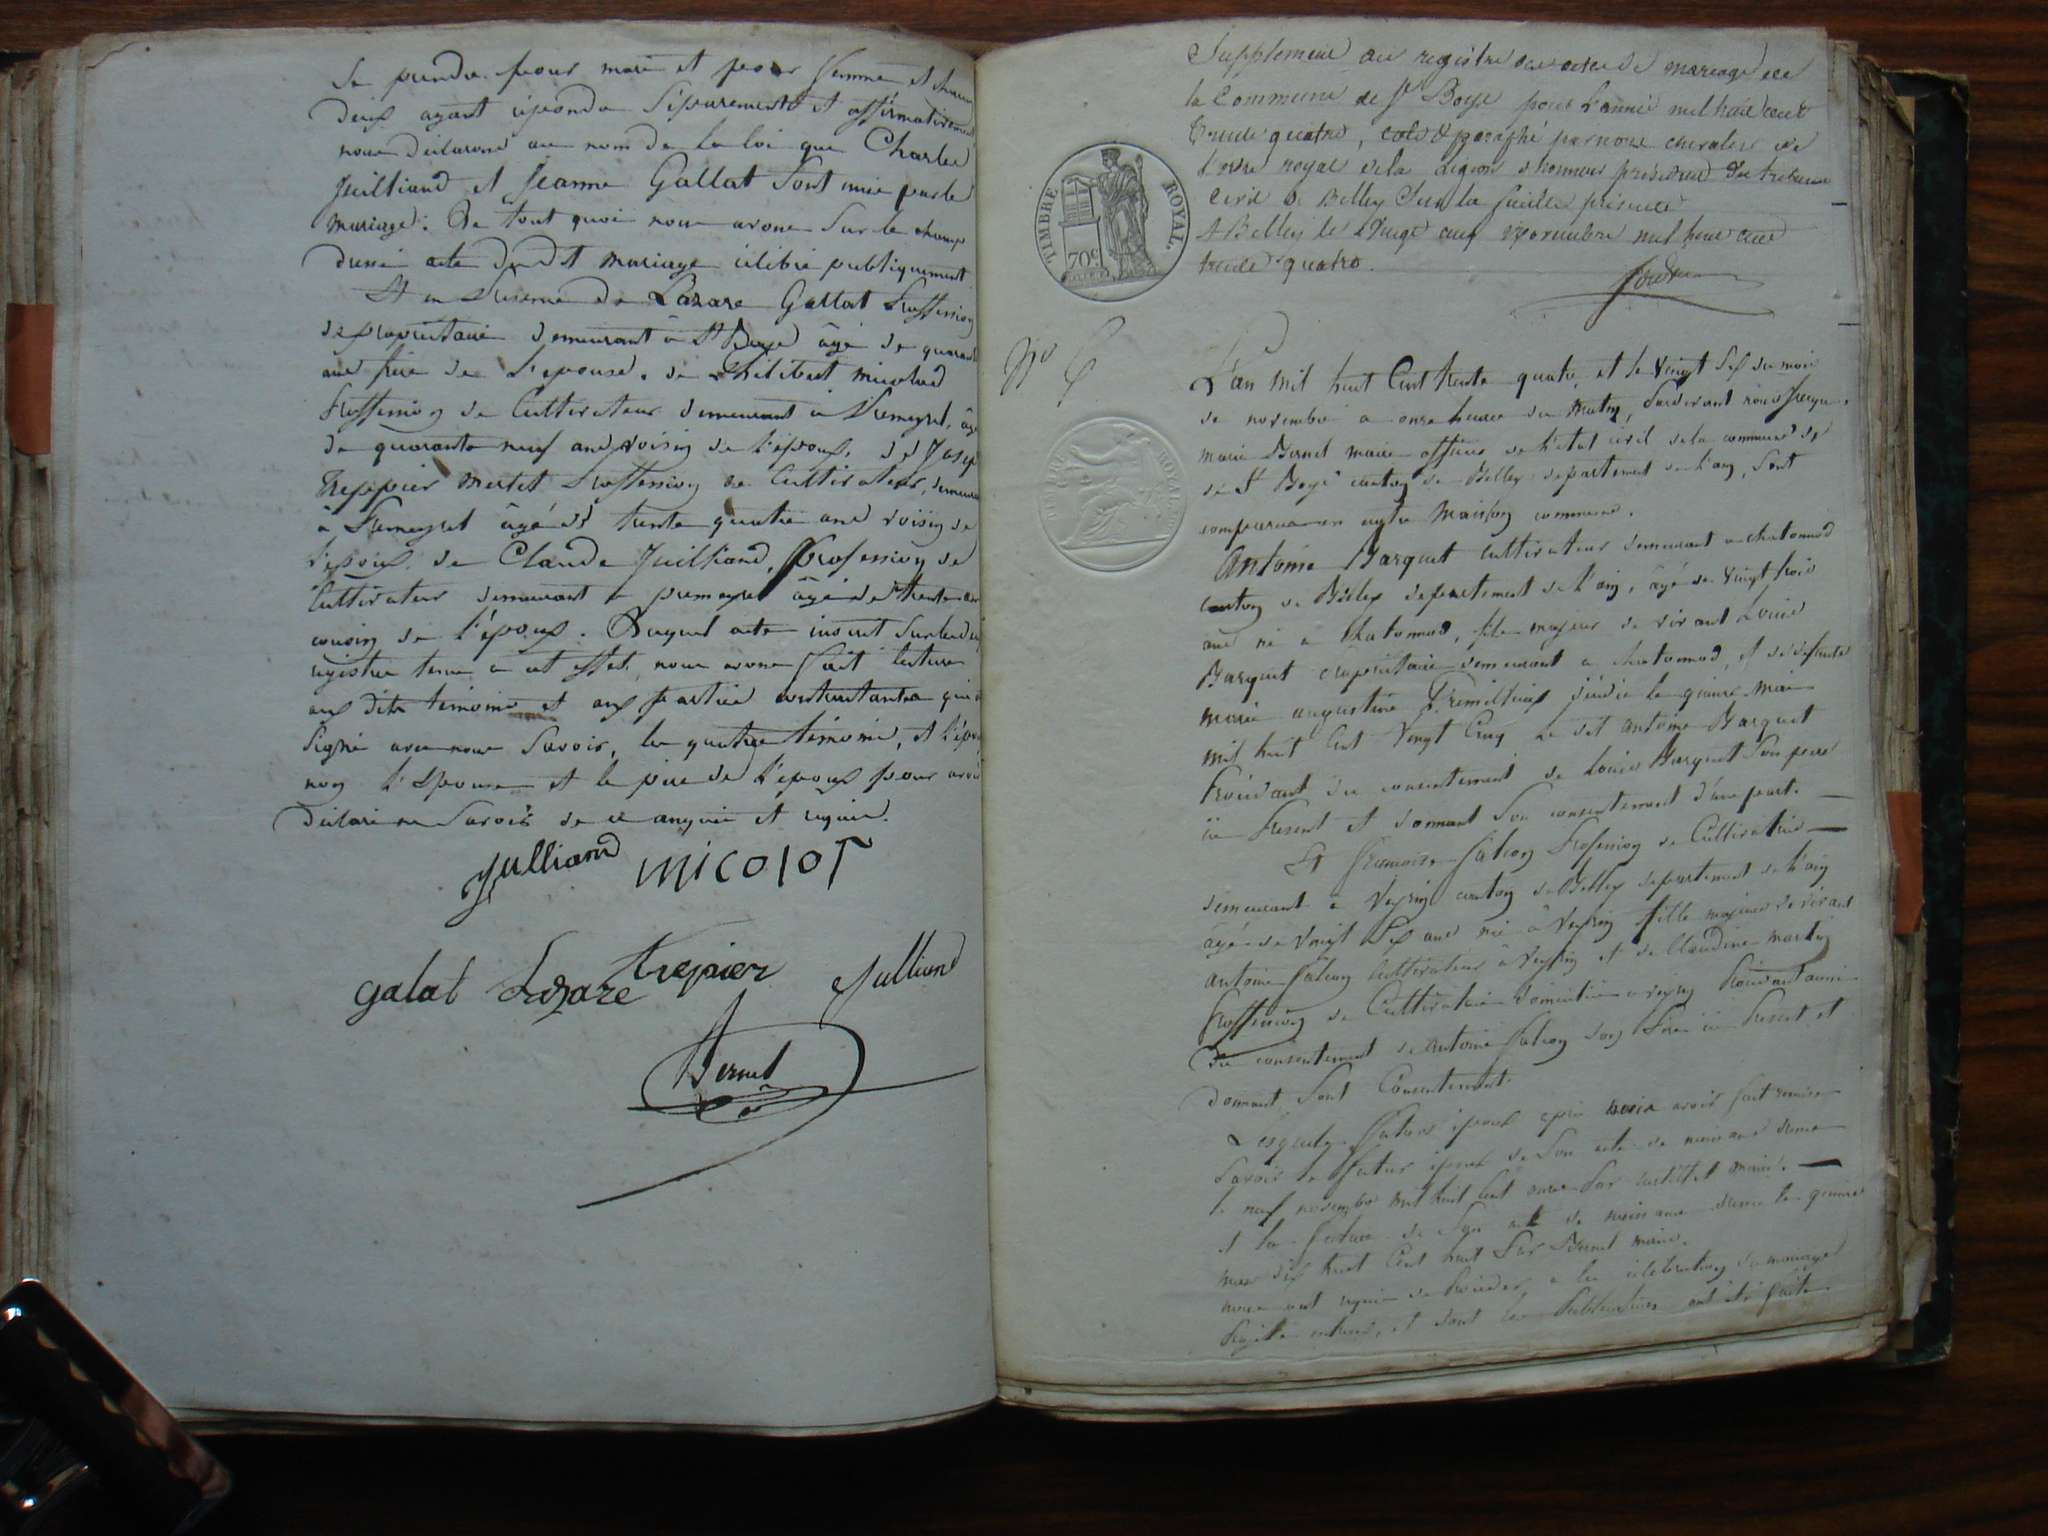 Se prendre pour mari et pour femme et chacun
deux ayant répondu séparement et affirmativement
nous déclarons au nom de la loi que Charles
Juilliand et Jeanne Gallat sont unis par le
mariage. De tout quoi nous avons sur le champ
dressé acte du dit mariage célébré publiquement
Et en présence de Lazare Gallat proffession
de propriétaire demeurant à St Boys âgé de quarante
ans frère de l'epouse. de Philibert micolod
proffession de Cultivateur demeurant à Premeyzel, âgé
de quarante neuf ans voisin de l'époux. de Joseph
Treppier proffession de Cultivateur, demeurant
à Premeyzel âgé de trente quatre ans voisin de
l'époux. de Claude Juilliand, proffession de
Cultivateur demeurant a premeyzel âgé de trente ans
cousin de l'époux. Duquel acte inscrit sur les deux
registre tenu a cet effet, nous avons fait lecture
aux dits témoins et aux parties contractantes qui ont
signé avec nous Savoir, les quatre témoins, et l'époux
non l'Epouse et le père de l'époux pour avoir
déclaré ne savoir de ce enquis et requis.
Julliand MICOLOT
galat Lazare trepier Julliand
Bernel
Supplement au registre des actes de mariage de
la Commune de St Boys pour l'année mil huit cent
trente quatre, coté & paraphé par nous chevalier de
l'ordre royal de la Légion d'honneur président du tribunal
Civil de Belley Sur la feuille présente
A Belley le Vingt cinq novembre mil huit cent
trente quatre.
TIMBRE ROYAL
70c
No 6
L'an mil huit Cent trente quatre, et le Vingt Six du mois
de novembre a onze heures du Matin, Pardevant nous
marie Bernel maire officier de l'etat civil de la commune de
de St Boys canton de Belley departement de l'ain, sont
comparus en notre Maison commune.
Antoine Barquet cultivateur demeurant a chatonnod
canton de Belley departement de l'ain, âgé de Vingt trois
ans né a Chatonnod, fils majeur de vivant Louis
Barquet propriétaire demeurant a chatonnod, et de défunte
marie augustine décédée le quinze Mai
mil huit Cent Vingt Cinq Le dit antoine Barquet
Procédant du consentement de Louis Barquet Son pere
ici Present et donnant Son consentement d'une part.
Et françoise falcoz Proffession de Cultivatrice
demeurant a Veyrin canton de Belley departement de l'ain
âgée de Vingt Six ans née à Veyrin fille majeure de vivant
antoine falcoz Cultivateur à Veyrin et de Claudine martin
Proffession de Cultivatrice domiciliée a veyrin Procédant aussi
du consentement de Antoine falcoz Son Père ici Present et
donnant Sont Consentement.
Lesquels futurs époux après nous avoir fait remise
Savoir le futur époux de Son acte de naissance dumen
le neuf novembre mil huit Cent onze Par maire.
et la future de Son acte de naissance dumen le quinze
mars dix huit Cent huit Par Bernel maire.
nous ont requis de Proceder a la célébration du mariage
Projeté entreux, et dont les Publications ont été faites